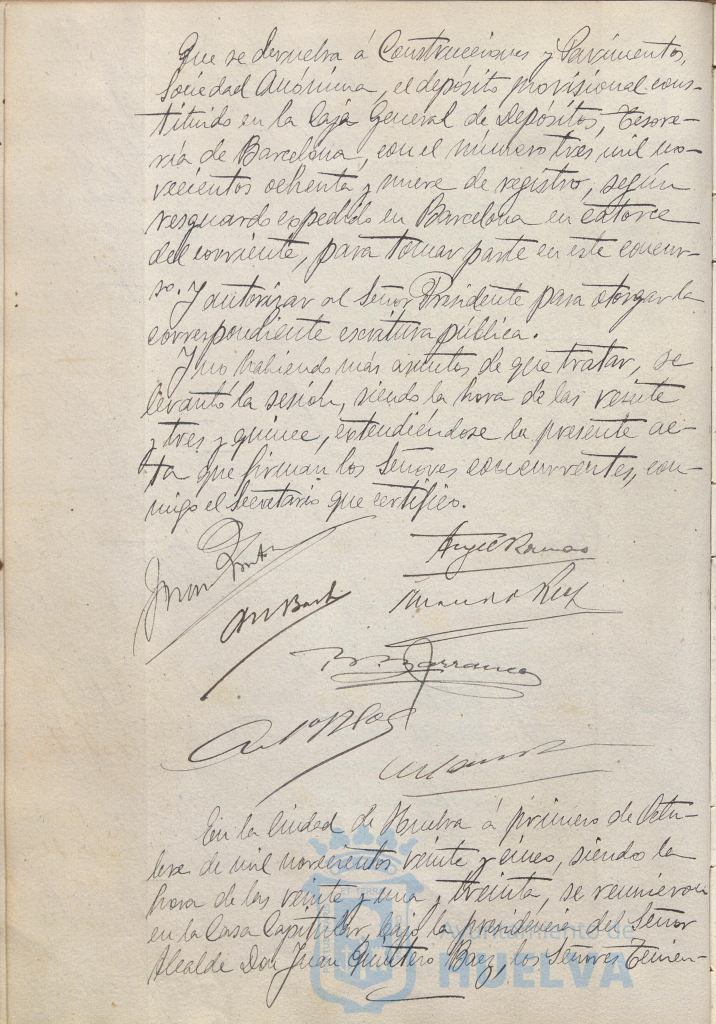 Que se devuelva á Construcciones y Pavimentos,
Sociedad Anónima, el depósito provisional cons-
tituido en la Caja General de Depósitos, Tesore-
ría de Barcelona, con el número tres mil no-
vecientos ochenta y nueve de registro, según
resguardo expedido en Barcelona en catorce
del corriente, para tomar parte en este concur-
so. Y autorizar al Señor Presidente para otorgar la
correspondiente escritura pública.
Y no habiendo más asuntos de que tratar, se
levantó la sesión, siendo la hora de las veinte
y tres y quince, extendiéndose la presente ac-
ta que firman los Señores concurrentes, con-
migo el Secretario que certifico.
Juan
B. Barranco
En la Ciudad de Huelva á primero de Octu-
bre de mil novecientos veinte y cinco, siendo la
hora de las veinte y una y treinta, se reunieron
en la Casa Capitular, bajo la presidencia del Señor
Alcalde Don Juan Quintero Baez, los Señores Tenien-
Ayuntamiento de
HUELVA